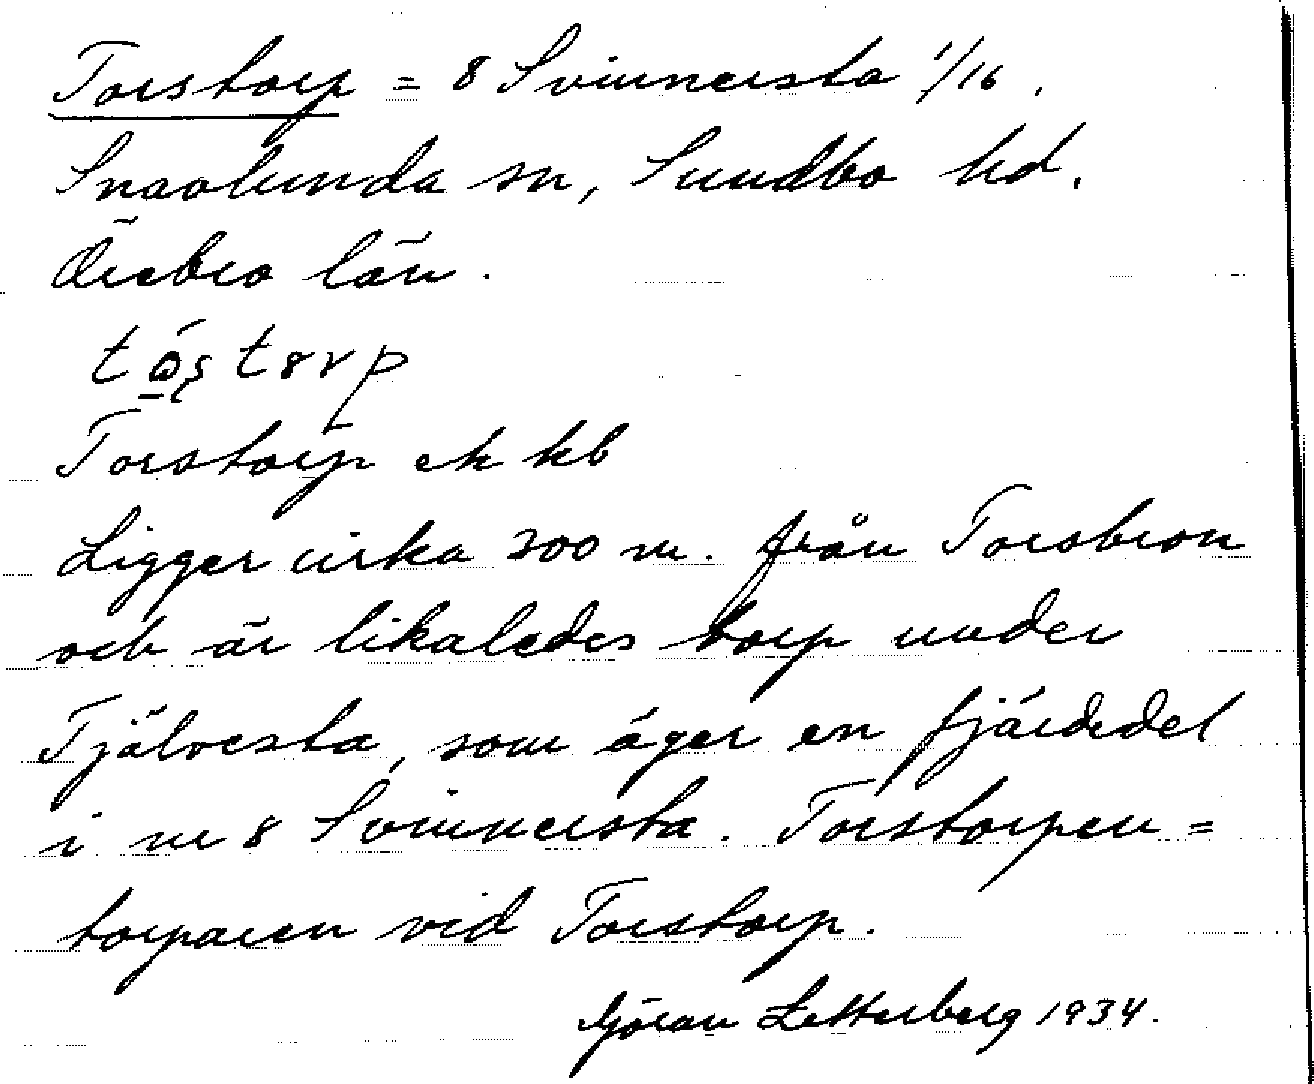 Torstorp = 8 Svinnersta 1/16.
Snavlunda sn, Sundbo hd.
Örebro län.
Torstorp ek kb
Ligger cirka 300 m. från Torsbron
och är likaledes torp under
Tjälvesta, som äger en fjärdedel
i nr 8 Svinnersta. Torstorpen =
torparen vid Torstorp.
Göran Zetterberg 1934.